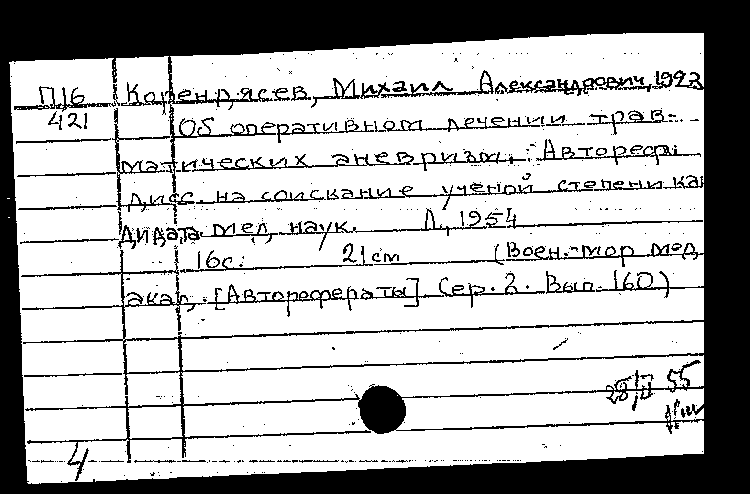 П16 Корендясев, Михаил Александрович, 1923
421 Об оперативном лечении трав-
матических аневризм. Автореф.
дисс. на соискание ученой степени кан
дидата мед. наук. Л., 1954
16с. 21см (Воен.-мор мед
акад. [Авторефераты] Сер. 2. Вып. 160)
28/II 55
4